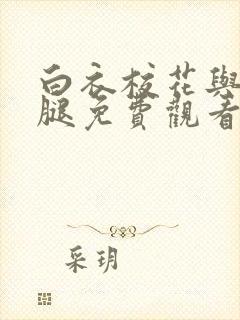 白衣校花與
腿免費觀看
采玥